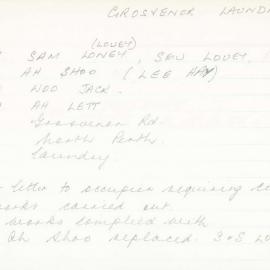 GROSVENOR LAUND
(LOUEY)
SAM LONEY, SEW LOUEY.
AH SHOO (LEE
WOO JACK.
AH LETT
Grosvenor Rd
North Perth.
Laundry
letter to occupier requiring
works carried out.
works complied with
Ah Shoo replaced.